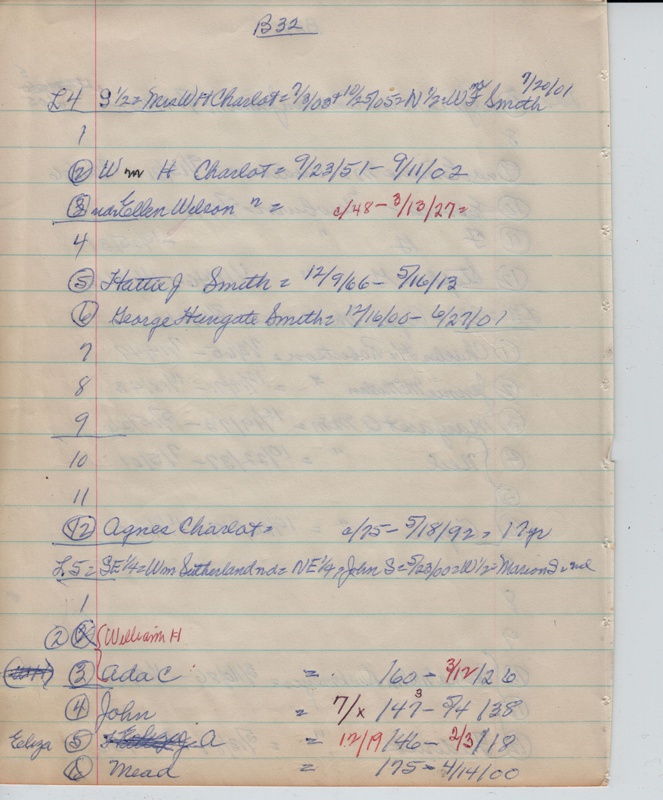 B32
L4 S 1/2 = Mrs W H Charlot = 7/3/03 + 10/25/05 = N 1/2 = W F Smith 7/20/01
1
2 Wm H Charlot = 9/23/51 - 9/11/02
3 Ellen Wilson " = c/48 - 3/13/27 =
4
5 Hattie J Smith = 12/9/66 - 5/16/13
6 George Hungate Smith = 12/16/00 - 6/27/01
7
8
9
10
11
12 Agnes Charlot = c/75 - 5/18/92 = 17 yr
L.5 = SE 1/4 = Wm Sutherland nd = NE 1/4 = John S = 5/23/00 = W 1/2 = Marion S nd
1
2 William H
3 Ada C = /60 - 3/12/26
4 John = 7/x /47 - 5/4/38
Eeliza 5 A = 12/19/46 - 2/3/18
6 Mead = 175 - 4/14/00